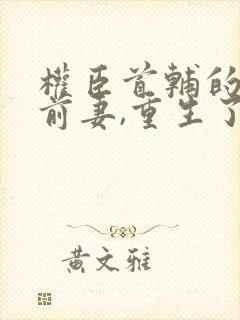 權臣首輔的
前妻,重生了
黃文雅